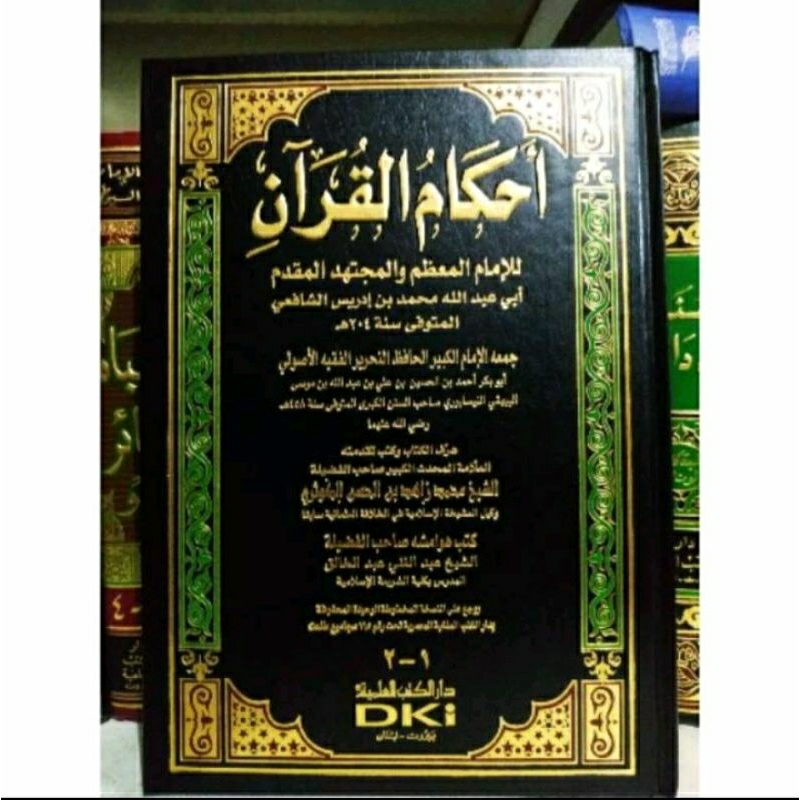 أَحكَامُ القُرَآنِ
للإمام المعظم والمجتهد المقدم
أبي عبد الله محمد بن إدريس الشافعي
المتوفى سنة ٢٠٤هـ
جمعه الإمام الكبير الحافظ النحرير الفقيه الأصولي
أبو بكر أحمد بن الحسين بن علي بن عبد الله بن موسى
البيهقي النيسابوري صاحب السنن الكبرى المتوفى سنة ٤٥٨هـ
رضي الله عنهما
عرّف الكتاب وكتب تقدمته
العلامة المحدث الكبير صاحب الفضيلة
الشيخ محمد زاهد بن الحسن الكوثري
وكيل المشيخة الإسلامية في الخلافة العثمانية سابقا
كتب هوامشه صاحب الفضيلة
الشيخ عبد الغني عبد الخالق
المدرس بكلية الشريعة الإسلامية
روجع على النسخة المخطوطة الوحيدة المحفوظة
بدار الكتب المصرية تحت رقم ٧١٨ مجاميع طلعت
١-٢
دار الكتب العلمية
DKi
بيروت - لبنان